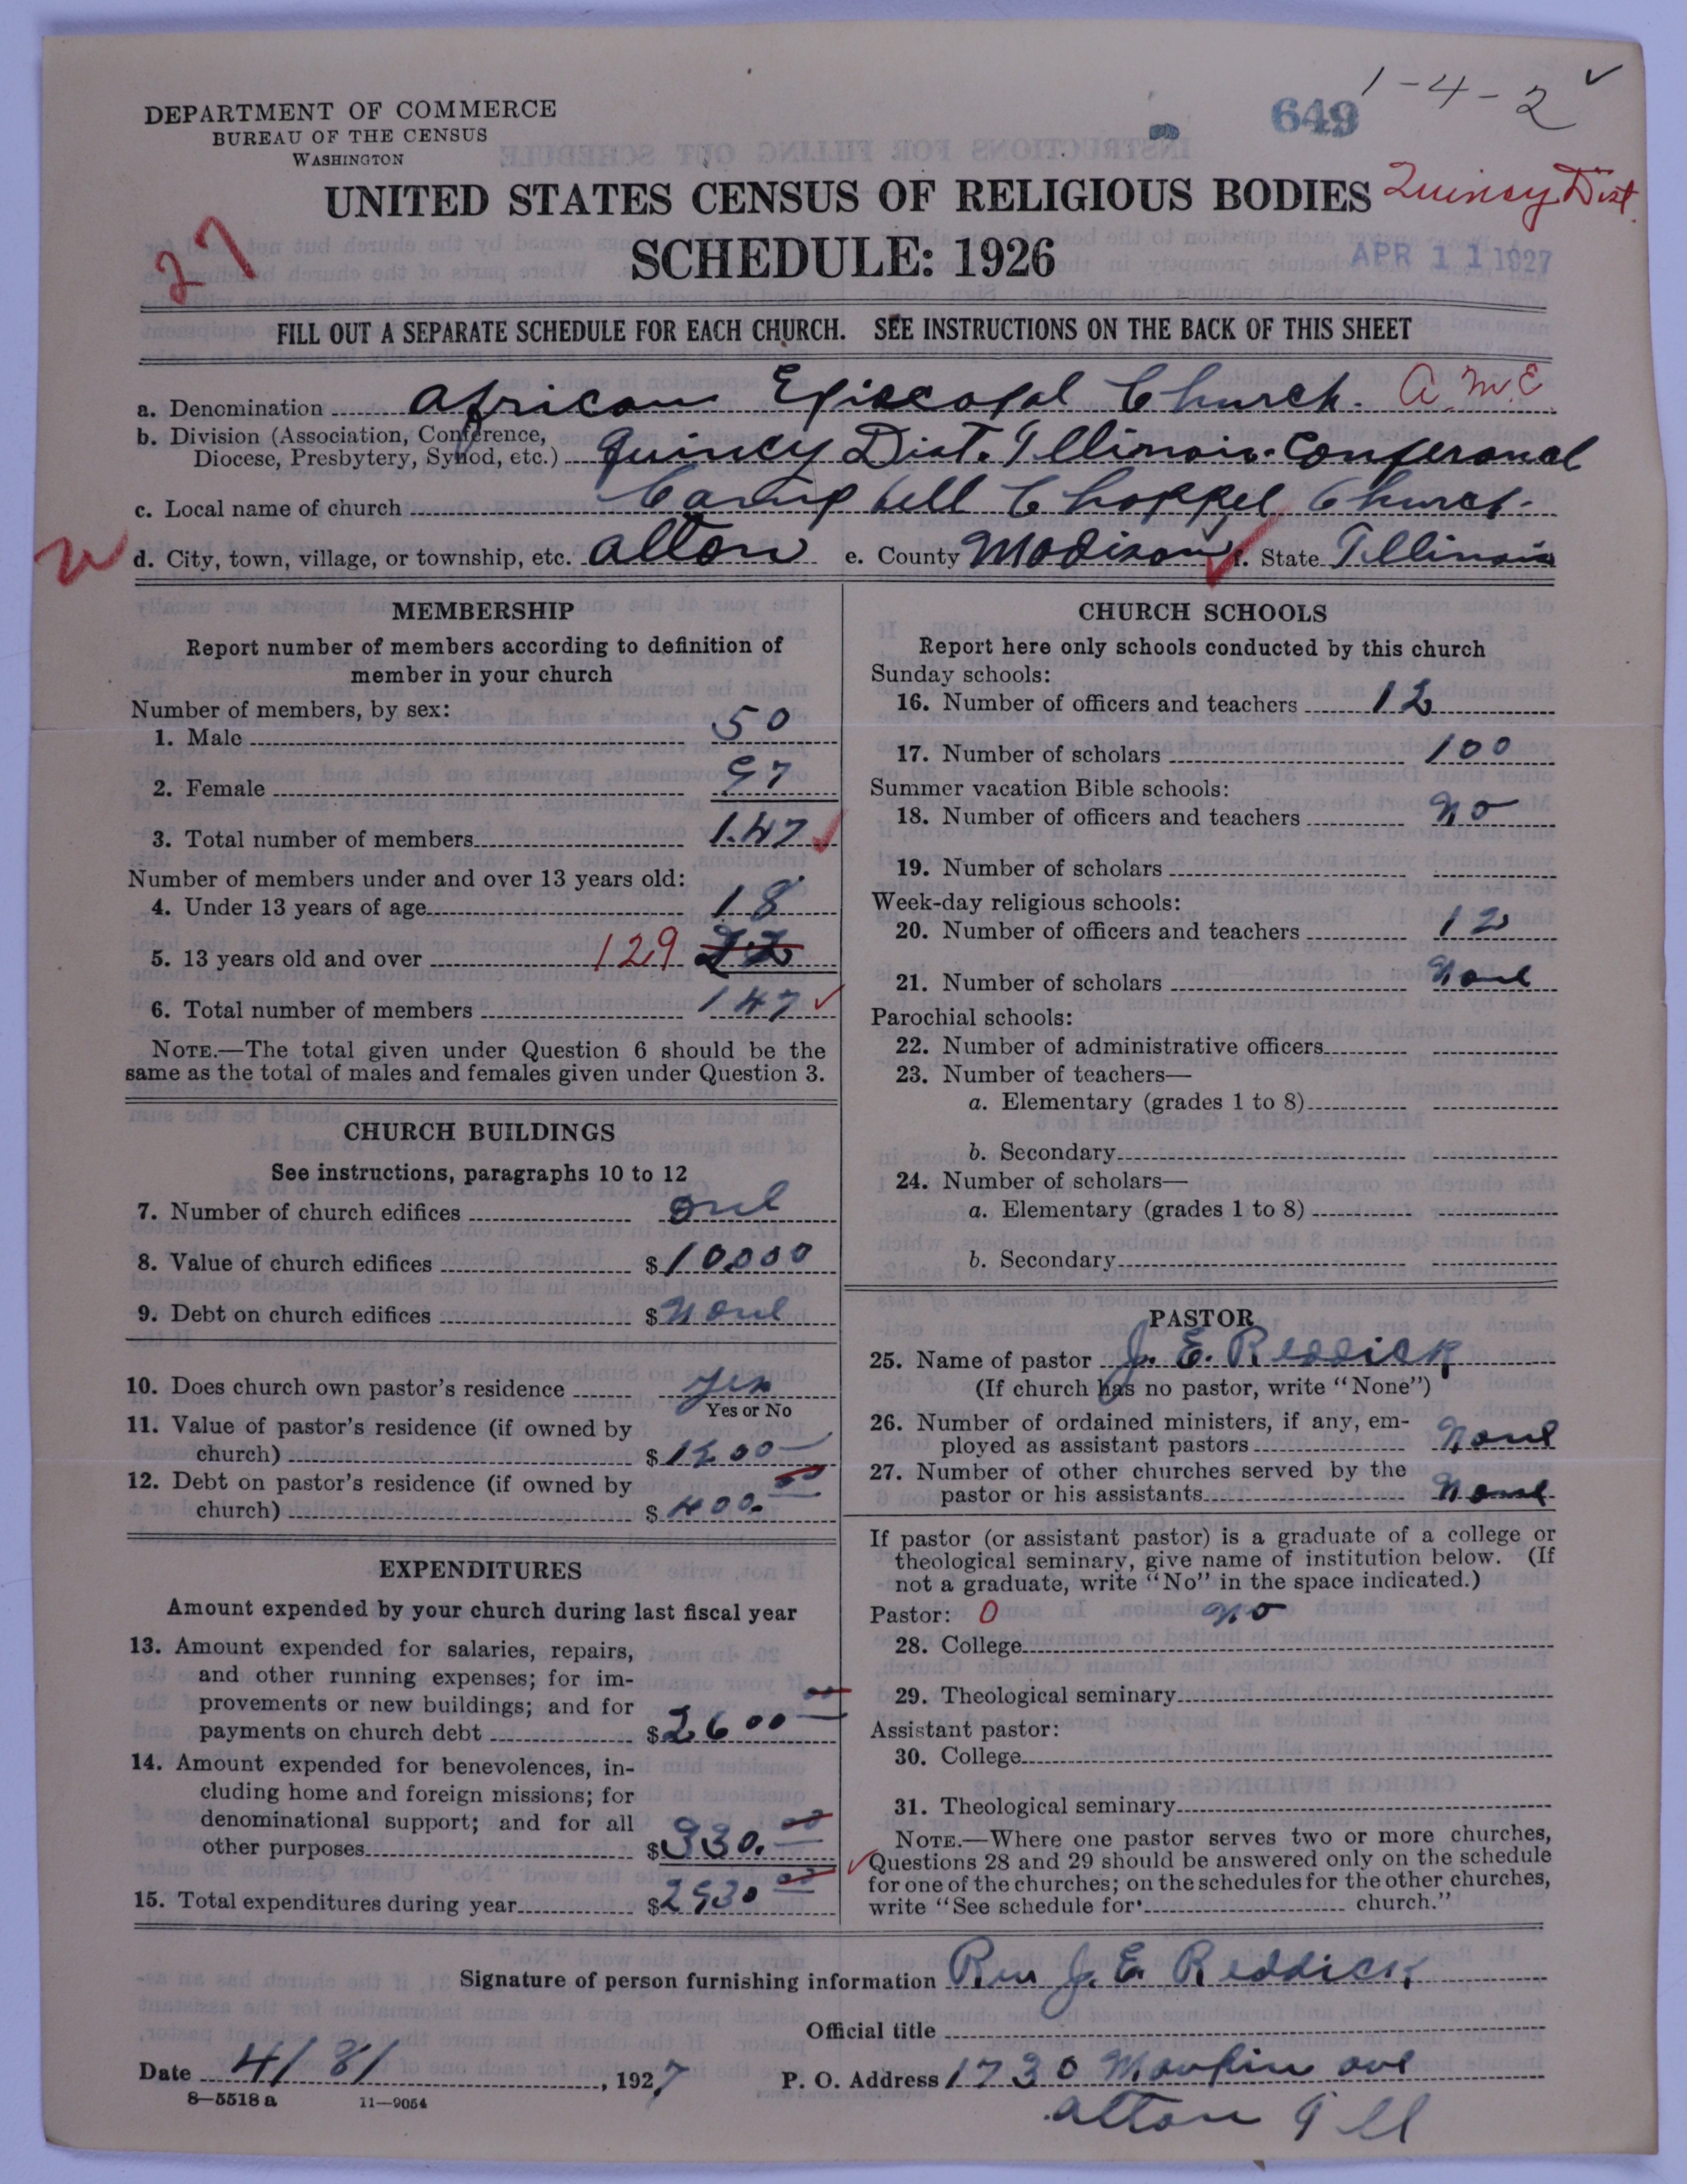 1-4-2 ✓
649
DEPARTMENT OF COMMERCE
BUREAU OF THE CENSUS
WASHINGTON
UNITED STATES CENSUS OF RELIGIOUS BODIES Quincy Dist.
27
SCHEDULE: 1926
APR 11 1927
FILL OUT A SEPARATE SCHEDULE FOR EACH CHURCH. SEE INSTRUCTIONS ON THE BACK OF THIS SHEET
a. Denomination African Episcopal Church. A.M.E
b. Division (Association, Conference,
Diocese, Presbytery, Synod, etc.) Quincy Dist. Illinois Conferance
c. Local name of church Campbell Chappel Church
d. City, town, village, or township, etc. Alton e. County Madison f. State Illinois
MEMBERSHIP
Report number of members according to definition of
member in your church
Number of members, by sex:
1. Male 50
2. Female 97
3. Total number of members 147
Number of members under and over 13 years old:
4. Under 13 years of age 18
5. 13 years old and over 129
6. Total number of members 147
NOTE.—The total given under Question 6 should be the
same as the total of males and females given under Question 3.
CHURCH BUILDINGS
See instructions, paragraphs 10 to 12
7. Number of church edifices one
8. Value of church edifices $10000
9. Debt on church edifices $None
10. Does church own pastor's residence yes
Yes or No
11. Value of pastor's residence (if owned by
church) $1200
12. Debt on pastor's residence (if owned by
church) $400.00
EXPENDITURES
Amount expended by your church during last fiscal year
13. Amount expended for salaries, repairs,
and other running expenses; for im-
provements or new buildings; and for
payments on church debt $2600 00
14. Amount expended for benevolences, in-
cluding home and foreign missions; for
denominational support; and for all
other purposes $330.00
15. Total expenditures during year $2930 00
CHURCH SCHOOLS
Report here only schools conducted by this church
Sunday schools:
16. Number of officers and teachers 12
17. Number of scholars 100
Summer vacation Bible schools:
18. Number of officers and teachers No
19. Number of scholars
Week-day religious schools:
20. Number of officers and teachers 12
21. Number of scholars None
Parochial schools:
22. Number of administrative officers
23. Number of teachers—
a. Elementary (grades 1 to 8)
b. Secondary
24. Number of scholars—
a. Elementary (grades 1 to 8)
b. Secondary
PASTOR
25. Name of pastor J. E. Reddick
(If church has no pastor, write "None")
26. Number of ordained ministers, if any, em-
ployed as assistant pastors None
27. Number of other churches served by the
pastor or his assistants None
If pastor (or assistant pastor) is a graduate of a college or
theological seminary, give name of institution below. (If
not a graduate, write "No" in the space indicated.)
Pastor: 0 No
28. College
29. Theological seminary
Assistant pastor:
30. College
31. Theological seminary
NOTE.—Where one pastor serves two or more churches,
Questions 28 and 29 should be answered only on the schedule
for one of the churches; on the schedules for the other churches,
write "See schedule for church."
Signature of person furnishing information Rev J. E. Reddick
Official title
Date 4/8/, 1927 P. O. Address 1730 ave
8—5518 a 11—9054
Alton Ill